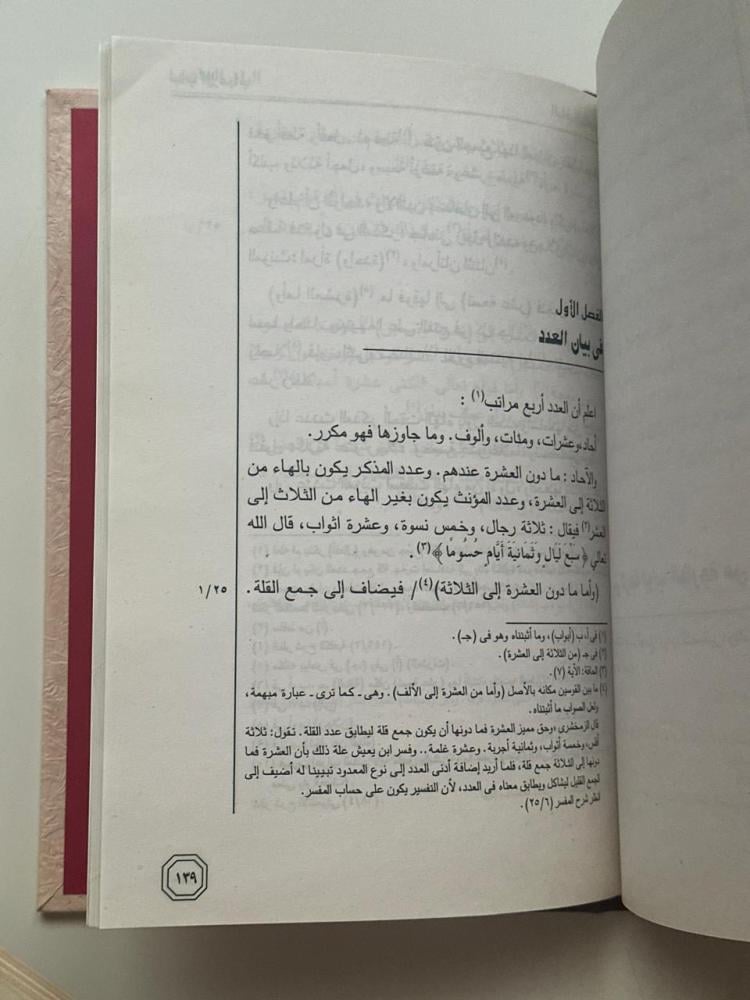 الفصل الأول
فى بيان العدد
اعلم أن العدد أربع مراتب(١) :
آحاد، وعشرات، ومئات، وألوف. وما جاوزها فهو مكرر.
والآحاد : ما دون العشرة عندهم. وعدد المذكر يكون بالهاء من
الثلاثة إلى العشرة، وعدد المؤنث يكون بغير الهاء من الثلاث إلى
العشر(٢) فيقال : ثلاثة رجال، وخمس نسوة، وعشرة اثواب، قال الله
تعالي ﴿سَبْعَ لَيَالٍ وَثَمَانِيَةَ أَيَّامٍ حُسُومًا﴾(٣).
(وأما ما دون العشرة إلى الثلاثة)(٤)/ فيضاف إلى جمع القلة . ١/٢٥
(١) فى أ، ب (أبواب)، وما أثبتناه وهو فى (جـ).
(٢) فى جـ (من الثلاثة إلى العشرة).
(٣) الحاقة: الآية (٧).
(٤) ما بين القوسين مكانه بالأصل (وأما من العشرة إلى الألف). وهى ـ كما ترى ـ عبارة مبهمة،
ولعل الصواب ما أثبتناه.
قال الزمخشرى، وحق مميز العشرة فما دونها أن يكون جمع قلة ليطابق عدد القلة. تقول: ثلاثة
أفلس، وخمسة أثواب، وثمانية أجربة. وعشرة غلمة.. وفسر ابن يعيش علة ذلك بأن العشرة فما
دونها إلى الثلاثة جمع قلة، فلما أريد إضافة أدنى العدد إلى نوع المعدود تبيينا له أضيف إلى
الجمع القليل ليشاكل ويطابق معناه فى العدد، لأن التفسير يكون على حساب المفسر.
انظر شرح المفسر (٢٥/٦).
١٣٩